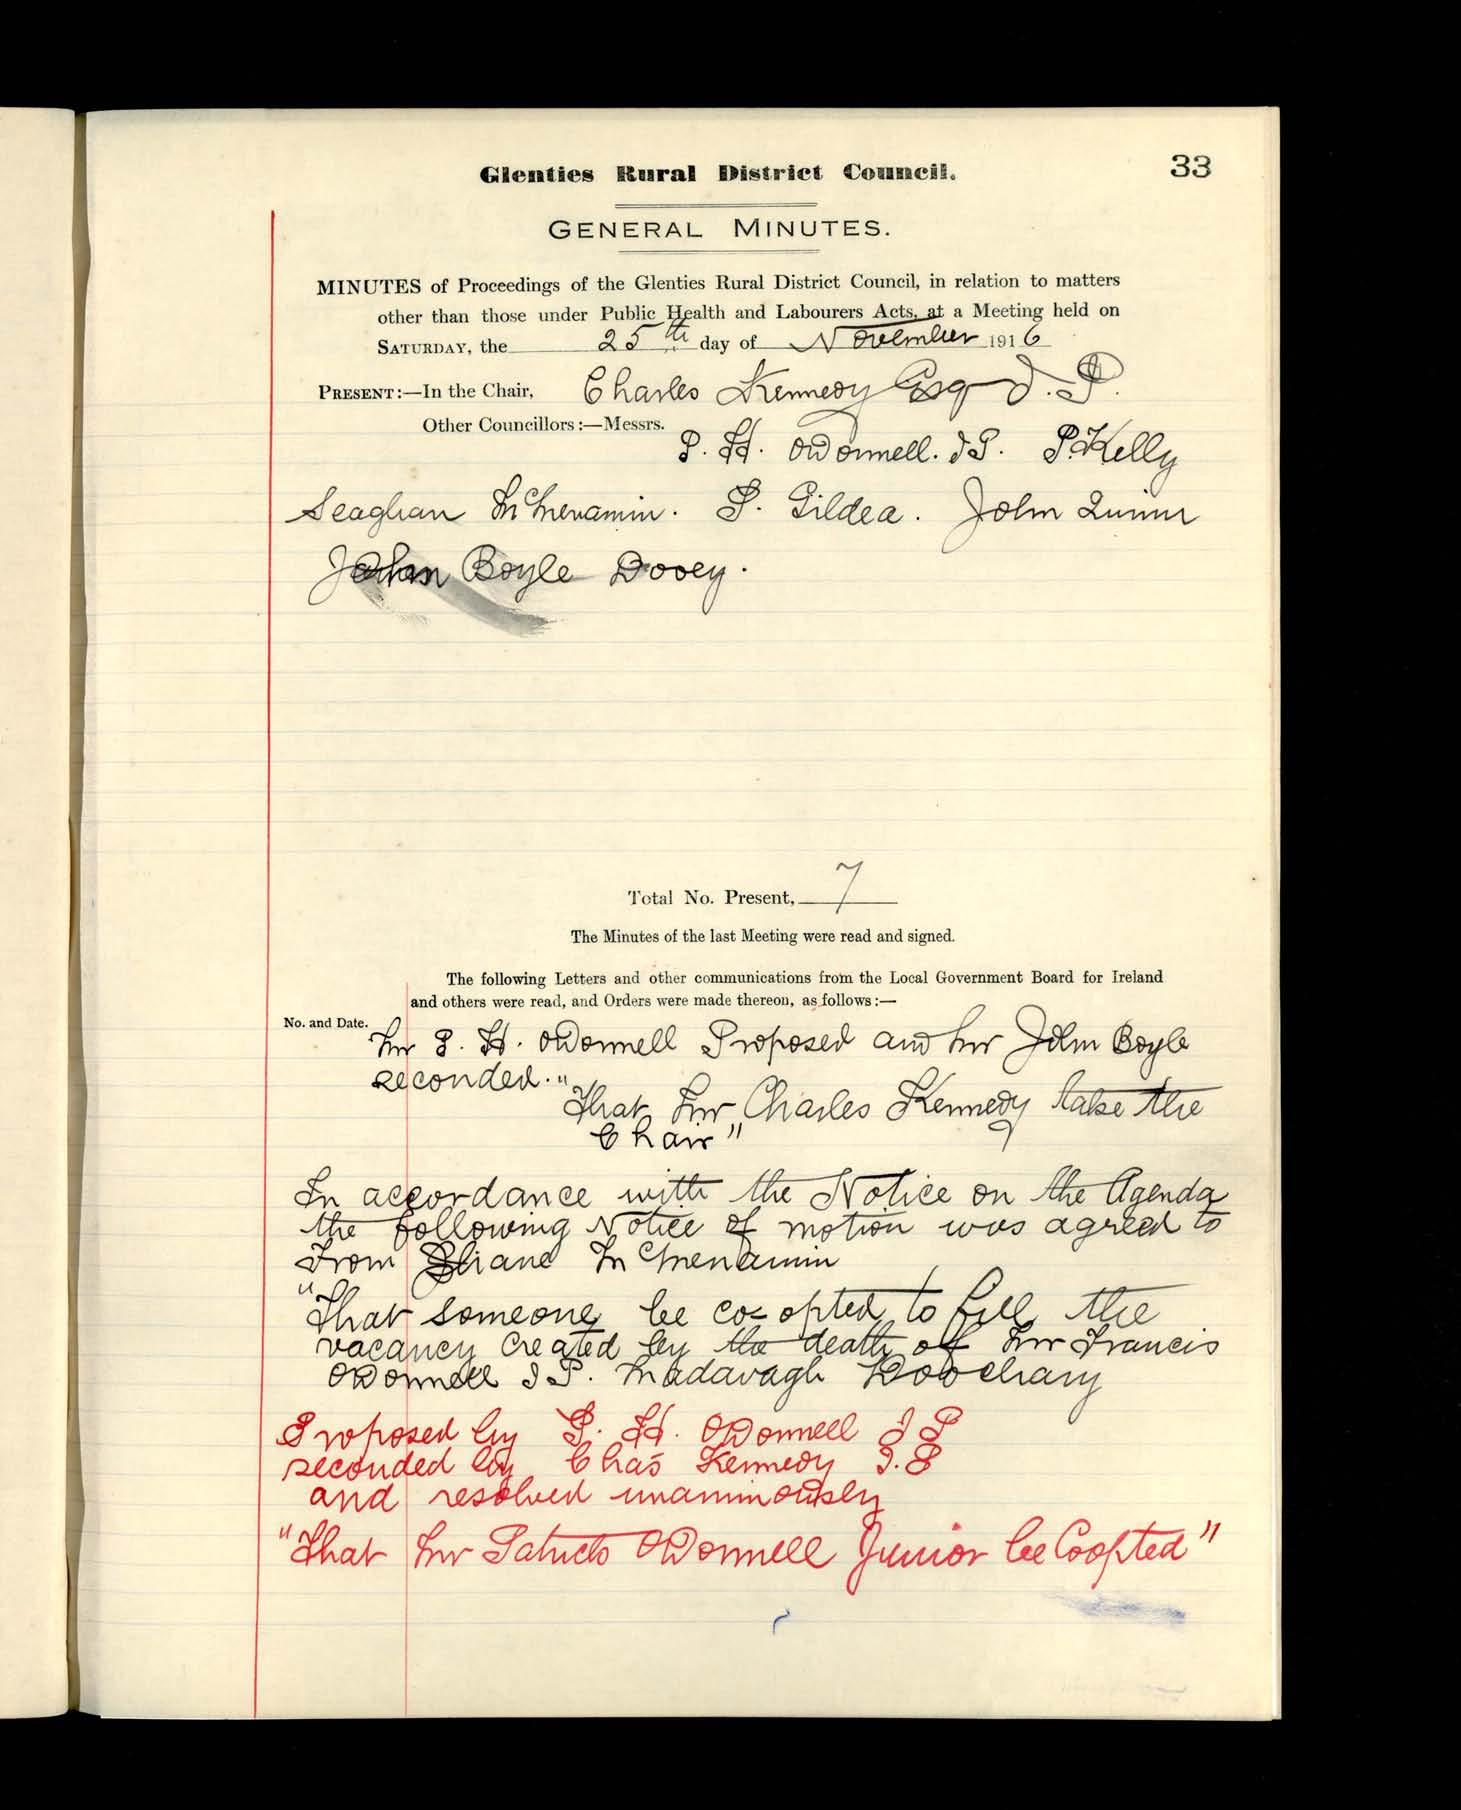 33
Glenties Rural District Council.
GENERAL MINUTES.
MINUTES of Proceedings of the Glenties Rural District Council, in relation to matters
other than those under Public Health and Labourers Acts, at a Meeting held on
SATURDAY, the 25th day of November 1916
PRESENT:—In the Chair, Charles Kennedy Esq J. P.
Other Councillors:—Messrs.
P. H. ODonnell. JP. P. Kelly
Seaghan McMenamin. P. Gildea. John Quinn
John Boyle Dooey.
Total No. Present, 7
The Minutes of the last Meeting were read and signed.
The following Letters and other communications from the Local Government Board for Ireland
and others were read, and Orders were made thereon, as follows:—
No. and Date.
Mr P. H. ODonnell Proposed and Mr John Boyle
seconded."
That Mr Charles Kennedy take the
Chair"
In accordance with the Notice on the Agenda
the following Notice of motion was agreed to
from Shane McMenamin
"That someone be co-opted to fill the
vacancy created by the death of Mr Francis
ODonnell JP. Madavagh Doochary
Proposed by P. H. ODonnell JP
seconded by Chas Kennedy J.P
and resolved unaminously
"That Mr Patrick ODonnell Junior be Coopted"